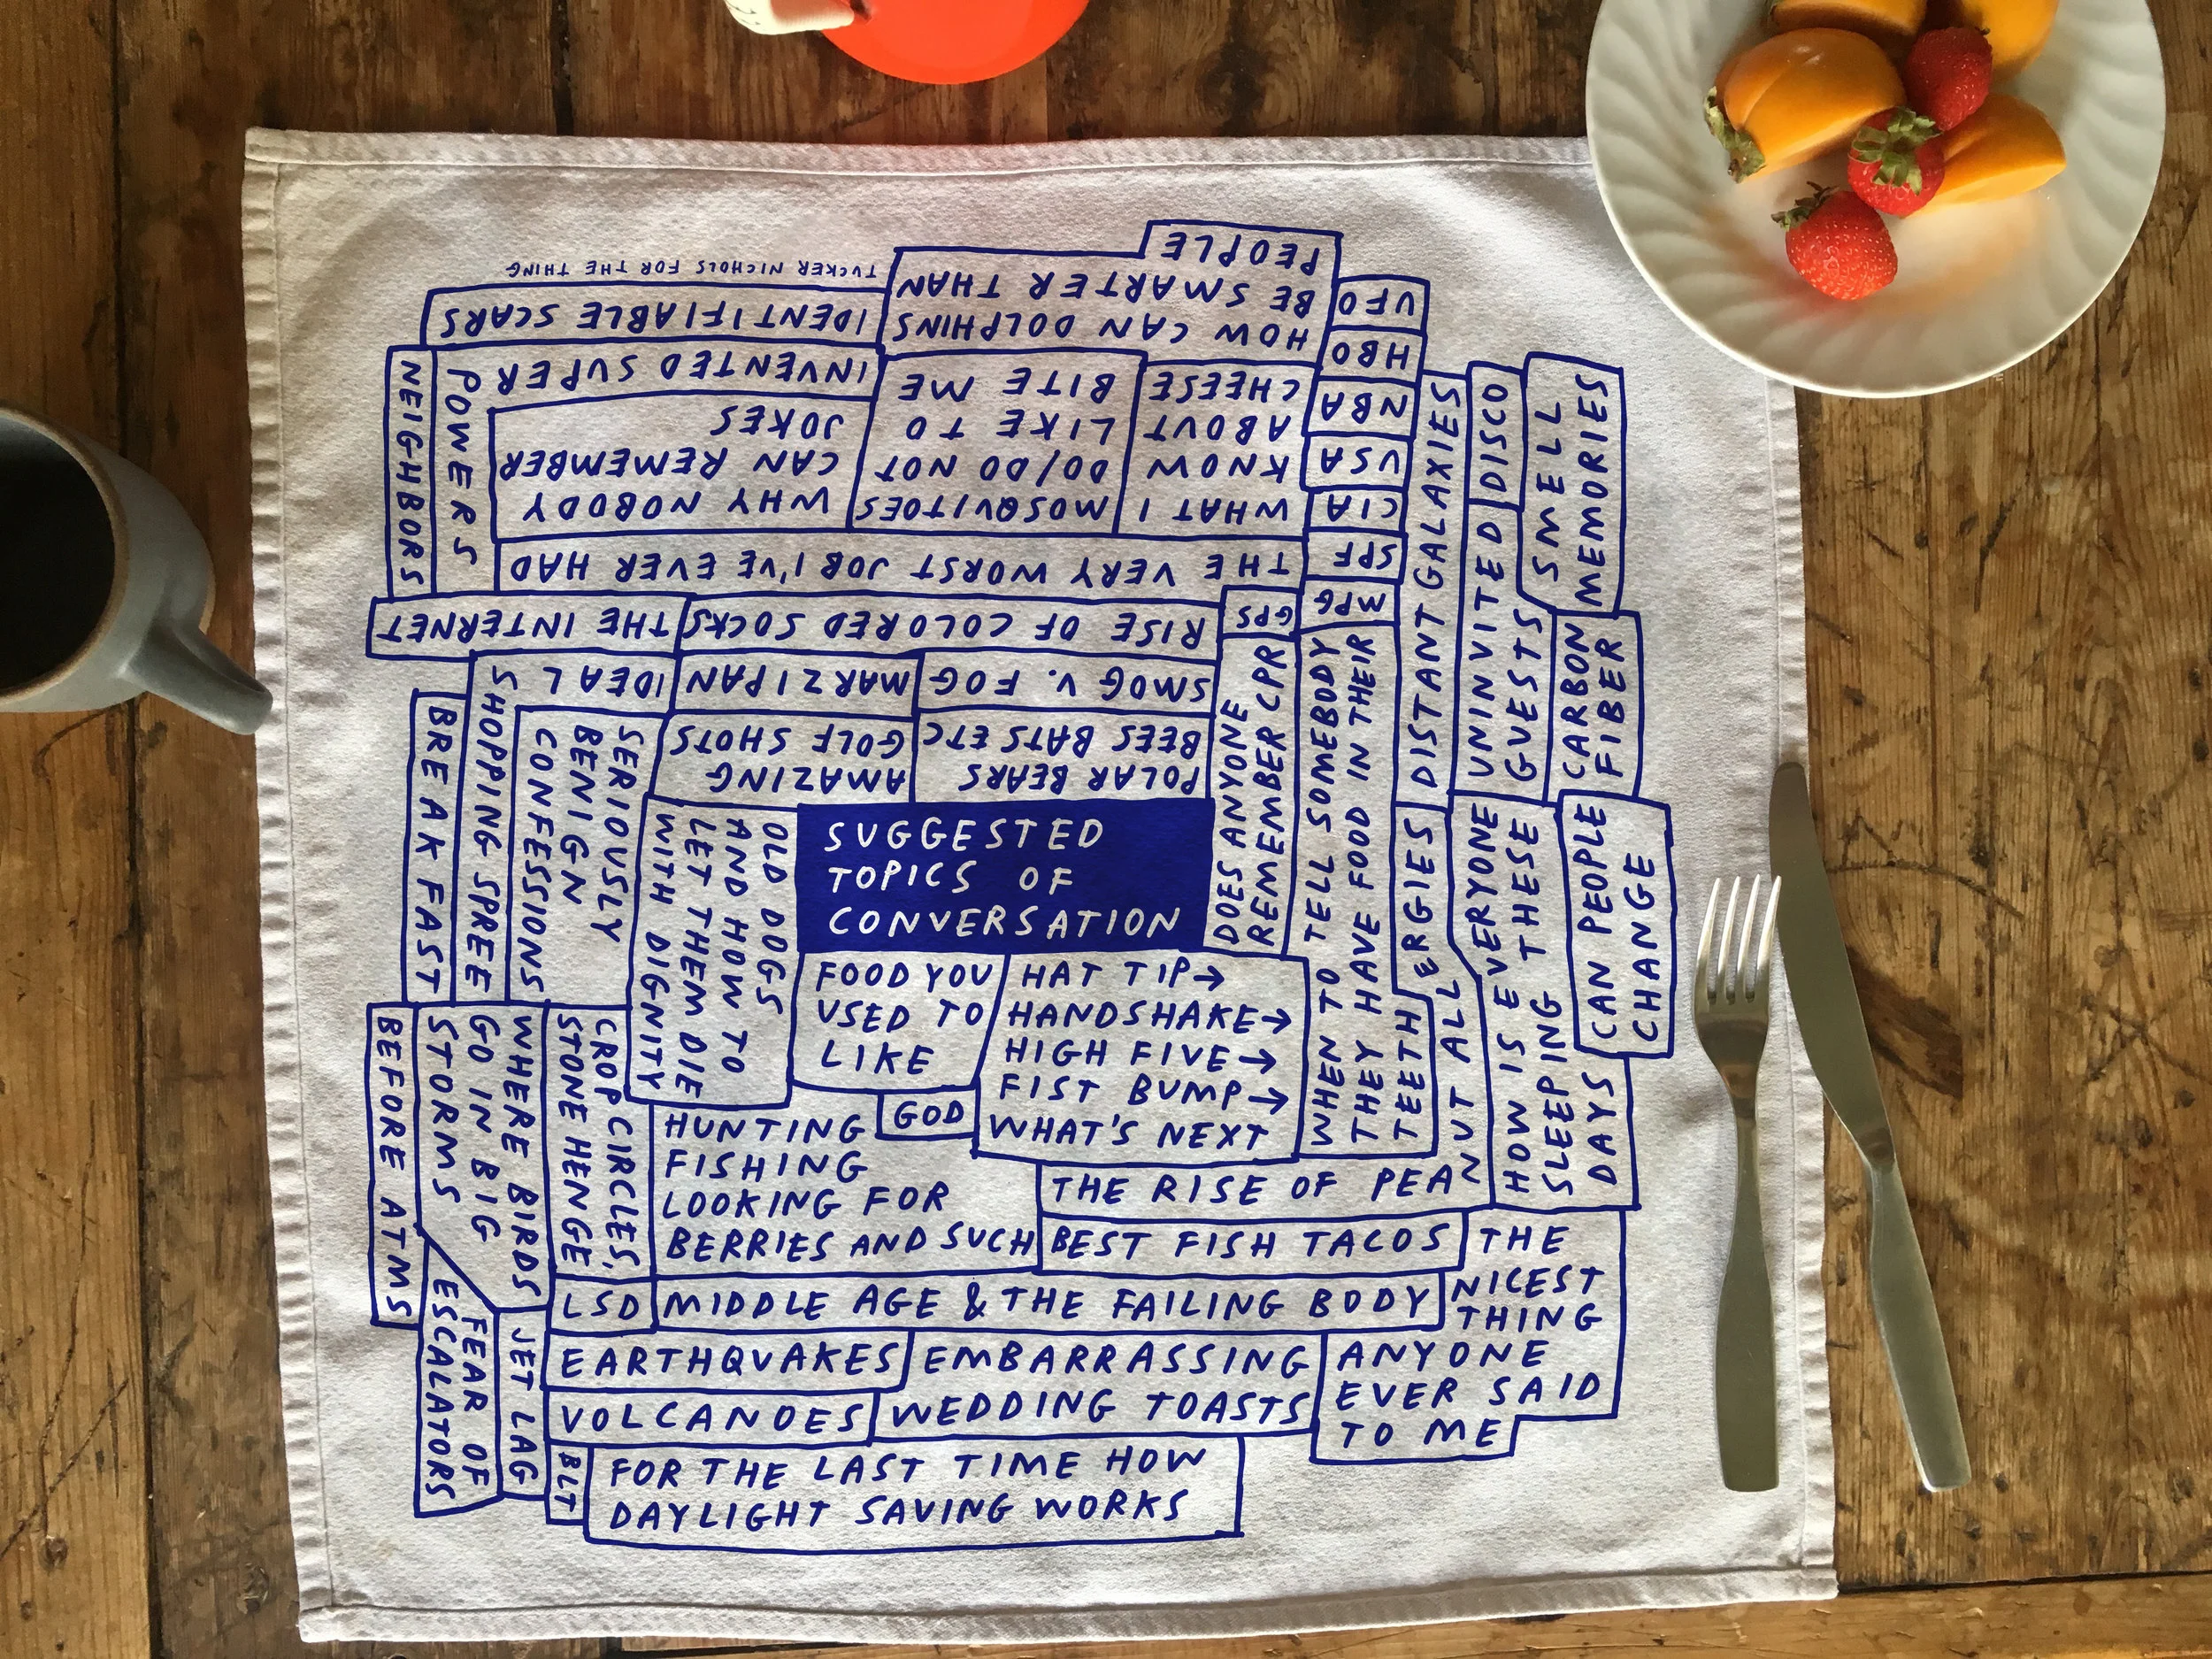 SUGGESTED
TOPICS OF
CONVERSATION
FOOD YOU
USED TO
LIKE
HAT TIP→
HANDSHAKE→
HIGH FIVE→
FIST BUMP→
WHAT'S NEXT
GOD
HUNTING
FISHING
LOOKING FOR
BERRIES AND SUCH
THE RISE OF PEANUT ALLERGIES
BEST FISH TACOS
THE
NICEST
THING
ANYONE
EVER SAID
TO ME
LSD
MIDDLE AGE & THE FAILING BODY
EARTHQUAKES
EMBARRASSING
WEDDING TOASTS
VOLCANOES
BLT
FOR THE LAST TIME HOW
DAYLIGHT SAVING WORKS
OLD DOGS
AND HOW TO
LET THEM DIE
WITH DIGNITY
SERIOUSLY
BENIGN
CONFESSIONS
IDEAL
SHOPPING SPREE
BREAKFAST
CROP CIRCLES,
STONEHENGE
WHERE BIRDS
GO IN BIG
STORMS
BEFORE ATMS
FEAR OF
ESCALATORS
JET LAG
NEIGHBORS
POLAR BEARS
BEES BATS ETC
AMAZING
GOLF SHOTS
SMOG V. FOG
MARZIPAN
RISE OF COLORED SOCKS
THE INTERNET
THE VERY WORST JOB I'VE EVER HAD
WHAT I
KNOW
ABOUT
CHEESE
MOSQUITOES
DO/DO NOT
LIKE TO
BITE ME
WHY NOBODY
CAN REMEMBER
JOKES
INVENTED SUPER
POWERS
HOW CAN DOLPHINS
BE SMARTER THAN
PEOPLE
IDENTIFIABLE SCARS
TUCKER NICHOLS FOR THE THING
UFO
HBO
NBA
USA
CIA
SPF
MPG
GPS
DOES ANYONE
REMEMBER CPR
WHEN TO TELL SOMEBODY
THEY HAVE FOOD IN THEIR
TEETH
DISTANT GALAXIES
DISCO
UNINVITED
GUESTS
SMELL
MEMORIES
CARBON
FIBER
HOW IS EVERYONE
SLEEPING THESE
DAYS
CAN PEOPLE
CHANGE